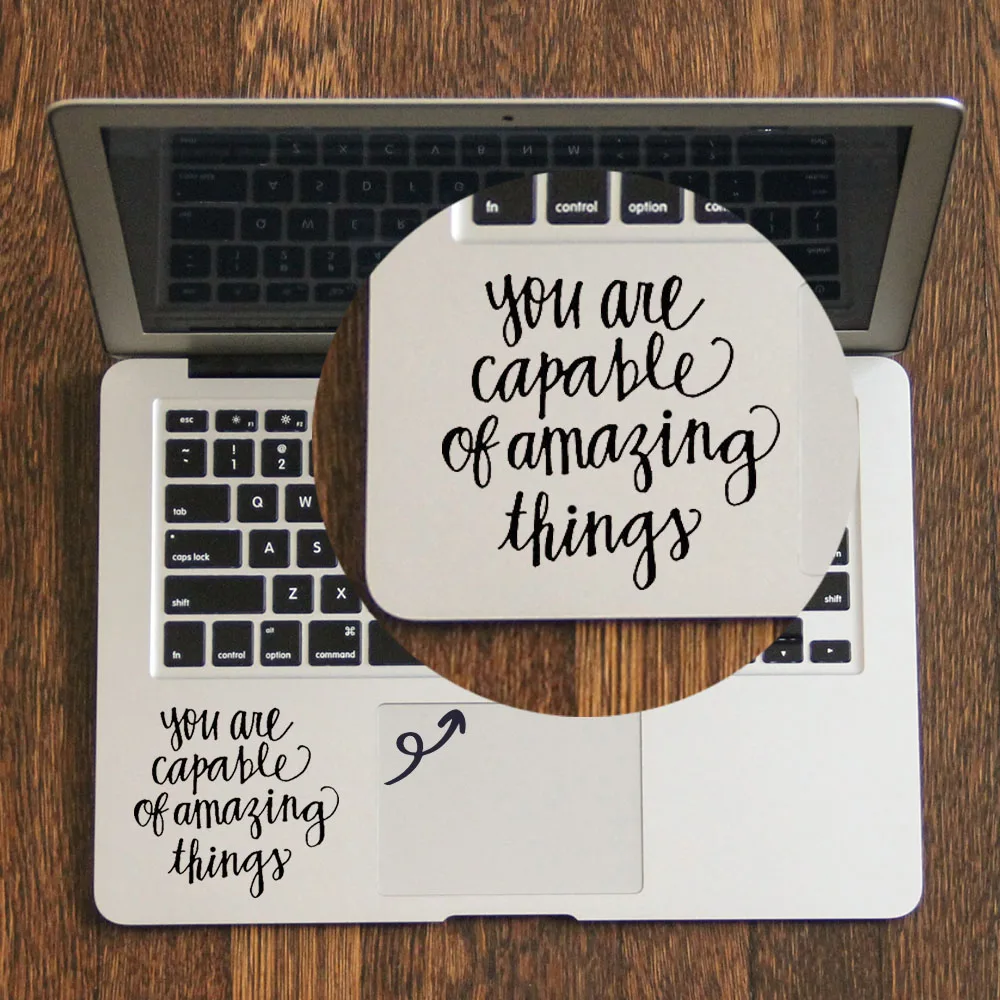 Z X C V B N M
A S D F G
Q W E R
fn control option
you are
capable
of amazing
things
esc F1 F2
~ ` ! 1 @ 2
tab Q W
caps lock A S
shift Z X
shift
fn control alt option ⌘ command
you are
capable
of amazing
things